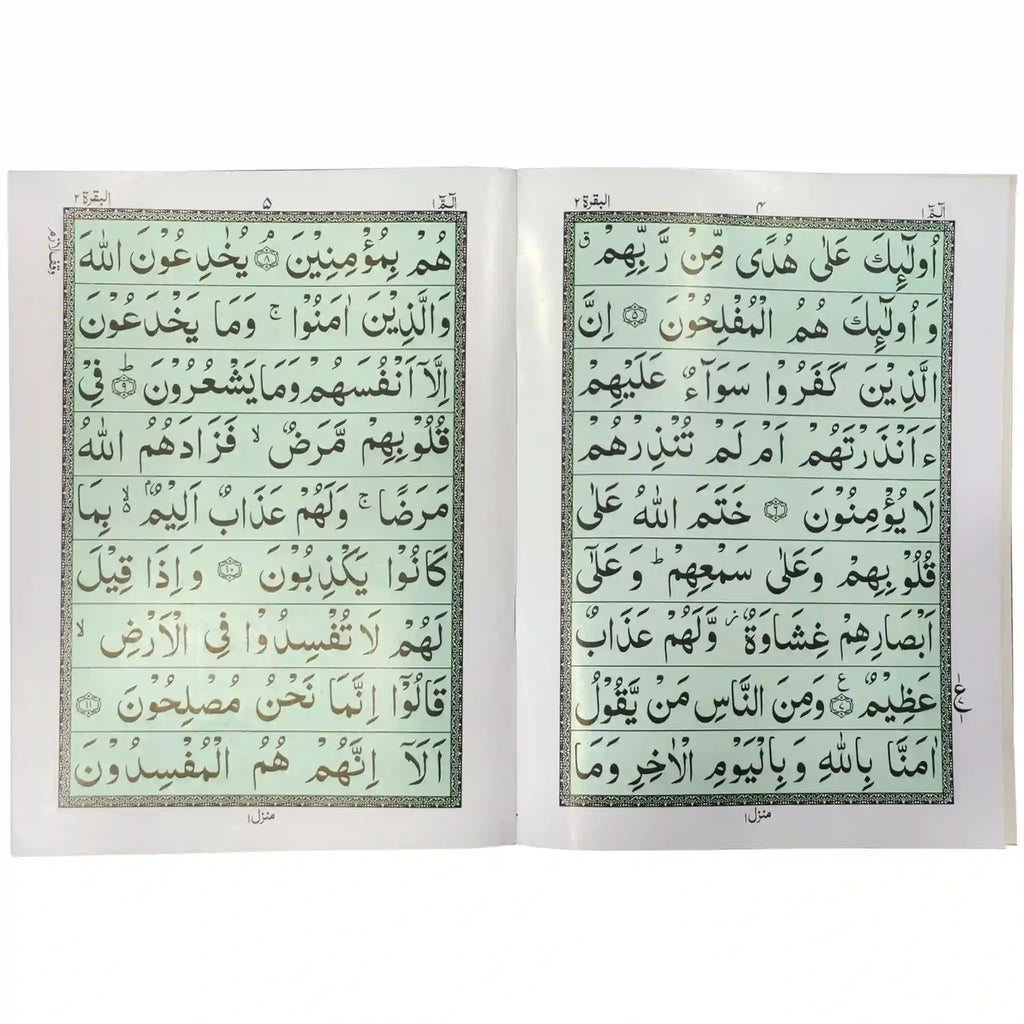 الٓمّٓ ١ ۴ البقرة ٢
اُولٰٓئِكَ عَلٰى هُدًى مِّنْ رَّبِّهِمْ ۗ
وَاُولٰٓئِكَ هُمُ الْمُفْلِحُوْنَ ۝۵ اِنَّ
الَّذِيْنَ كَفَرُوْا سَوَآءٌ عَلَيْهِمْ
ءَاَنْذَرْتَهُمْ اَمْ لَمْ تُنْذِرْهُمْ
لَا يُؤْمِنُوْنَ ۝۶ خَتَمَ اللّٰهُ عَلٰى
قُلُوْبِهِمْ وَعَلٰى سَمْعِهِمْ ؕ وَعَلٰٓى
اَبْصَارِهِمْ غِشَاوَةٌ ز وَّلَهُمْ عَذَابٌ
عَظِيْمٌ ۝۷ ع وَمِنَ النَّاسِ مَنْ يَّقُوْلُ
اٰمَنَّا بِاللّٰهِ وَبِالْيَوْمِ الْاٰخِرِ وَمَا
منزل ١
الٓمّٓ ١ ۵ البقرة ٢
هُمْ بِمُؤْمِنِيْنَ ۝۸ۘ يُخٰدِعُوْنَ اللّٰهَ
وقف لازم
وَالَّذِيْنَ اٰمَنُوْا ۚ وَمَا يَخْدَعُوْنَ
اِلَّاۤ اَنْفُسَهُمْ وَمَا يَشْعُرُوْنَ ۝۹ؕ فِيْ
قُلُوْبِهِمْ مَّرَضٌ ۙ فَزَادَهُمُ اللّٰهُ
مَرَضًا ۚ وَلَهُمْ عَذَابٌ اَلِيْمٌۢ ۙ بِمَا
كَانُوْا يَكْذِبُوْنَ ۝۱۰ وَاِذَا قِيْلَ
لَهُمْ لَا تُفْسِدُوْا فِي الْاَرْضِ ۙ
قَالُوْۤا اِنَّمَا نَحْنُ مُصْلِحُوْنَ ۝۱۱
اَلَاۤ اِنَّهُمْ هُمُ الْمُفْسِدُوْنَ
منزل ١